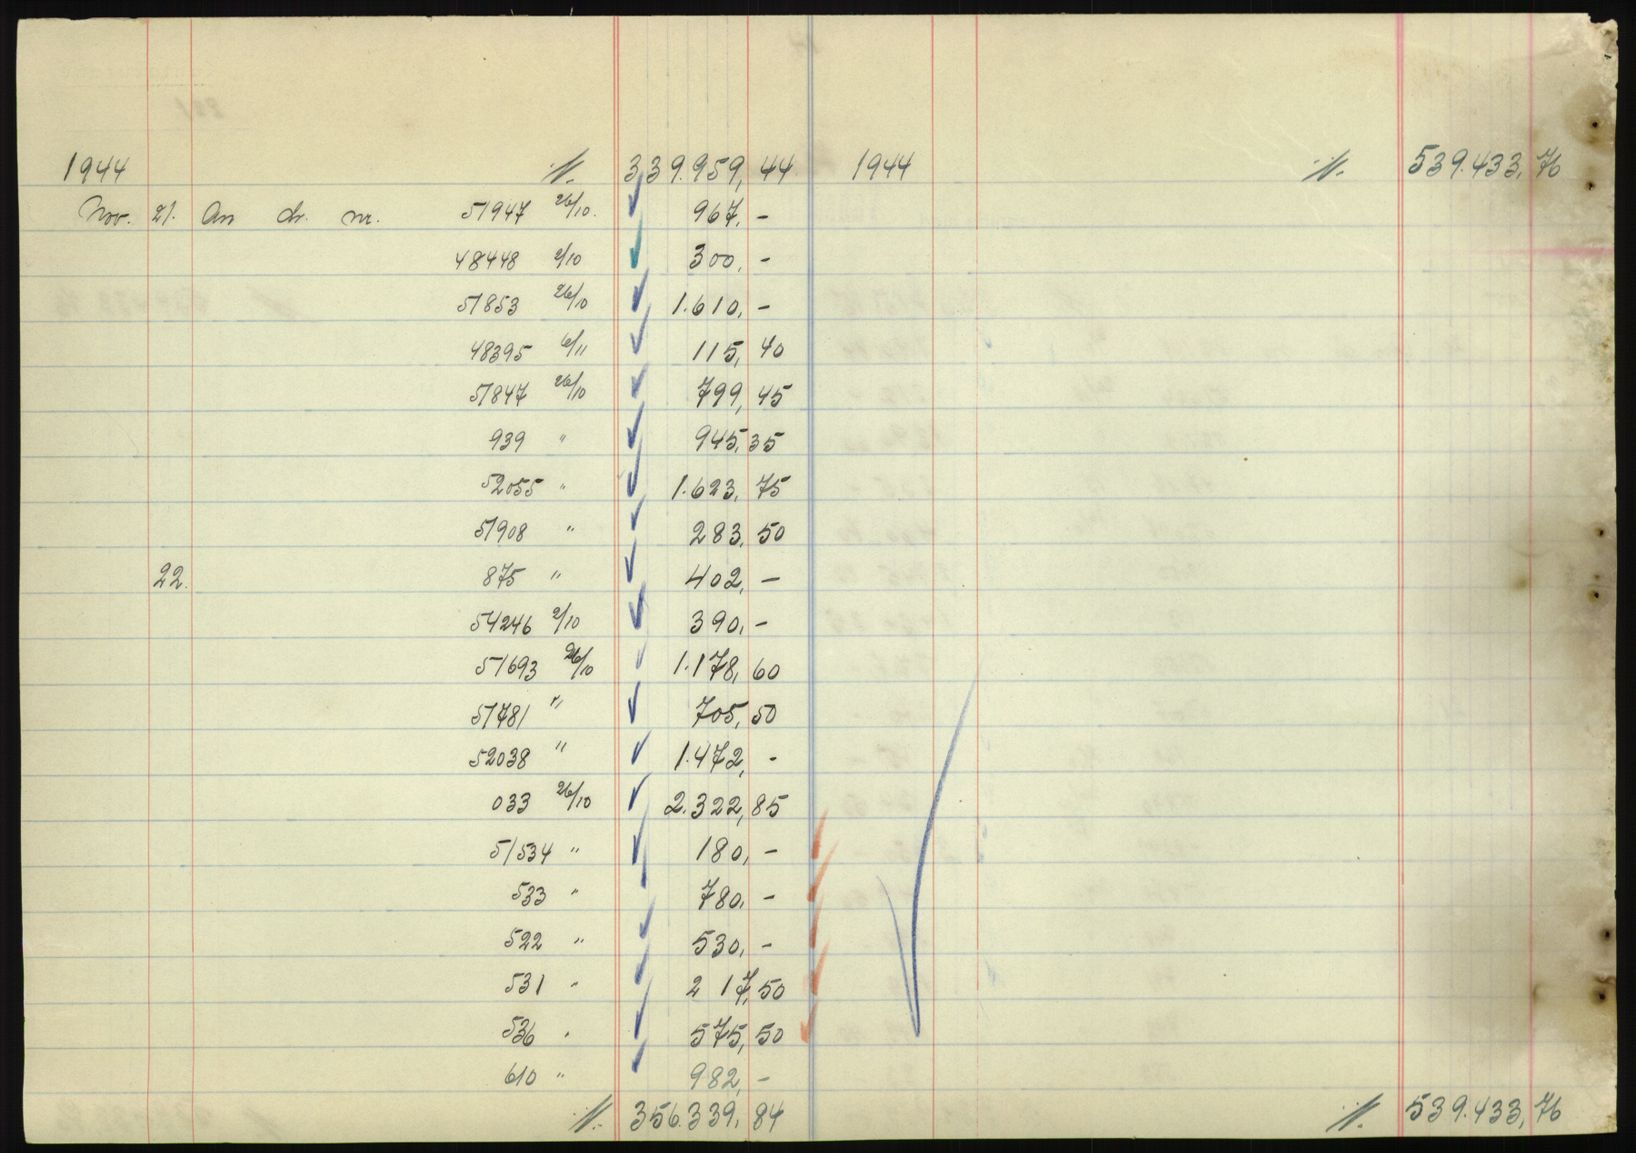 1944 ./. 339.959,44 1944 ./. 539.433,76
Nov. 21. An ch. nr. 51947 26/10. 967,-
48448 2/10 300,-
51853 26/10 1.610,-
48395 6/11 115,40
51847 26/10 799,45
939 " 945,35
52055 " 1.623,75
51908 " 283,50
22. 875 " 402,-
54246 2/10 390,-
51693 26/10 1.178,60
51781 " 705,50
52038 " 1.472,-
033 26/10 2.322,85
51534 " 180,-
533 " 780,-
522 " 530,-
531 " 217,50
536 " 575,50
610 " 982,-
./. 356.339,84 ./. 539.433,76